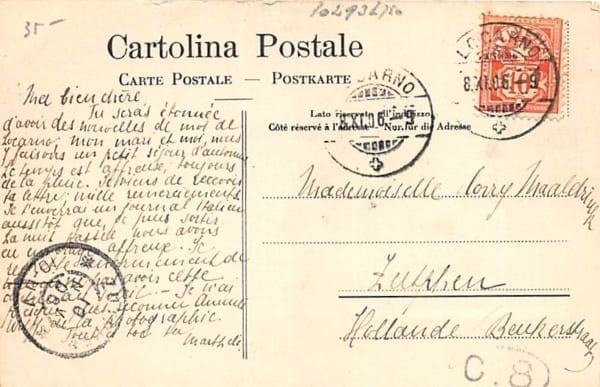 35-
102932/50
Cartolina Postale
CARTE POSTALE — POSTKARTE
Lato riservato all'indirizzo
Côté réservé à l'adresse Nur für die Adresse
LOCARNO
8.XI.06.-9
LOCARNO
8.XI.06.-9
10
Ma bien chère
Tu seras étonnée
d'avoir des nouvelles de moi de
Locarno, mon mari et moi, nous
y faisons un petit séjour d'automne
Le temps est affreux, toujours
de la pluie. Je viens de recevoir
ta lettre, mille remerciements
Je t'enverrai un journal italien
aussitôt que je puis sortir
La nuit passée nous avons
eu affreux. Je
avais cette
Je n'ai
pas reconnu
de la photographie
Tout à toi ta
Mathilde
Mademoiselle Corry Maaldrink
Zutphen
Hollande Beukerstraat
C.8